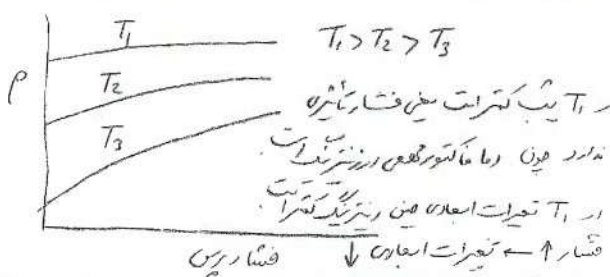 T₁
T₁ > T₂ > T₃
ρ
T₂
در T₁ شیب کمتر است یعنی فشار تأثیری
T₃
ندارد چون دما فاکتور قطعی در زینترینگ است.
در T₁ تغیرات ابعادی حین زینترینگ کمتر است.
فشار ↑ ← تغیرات ابعادی ↓
فشار پرس